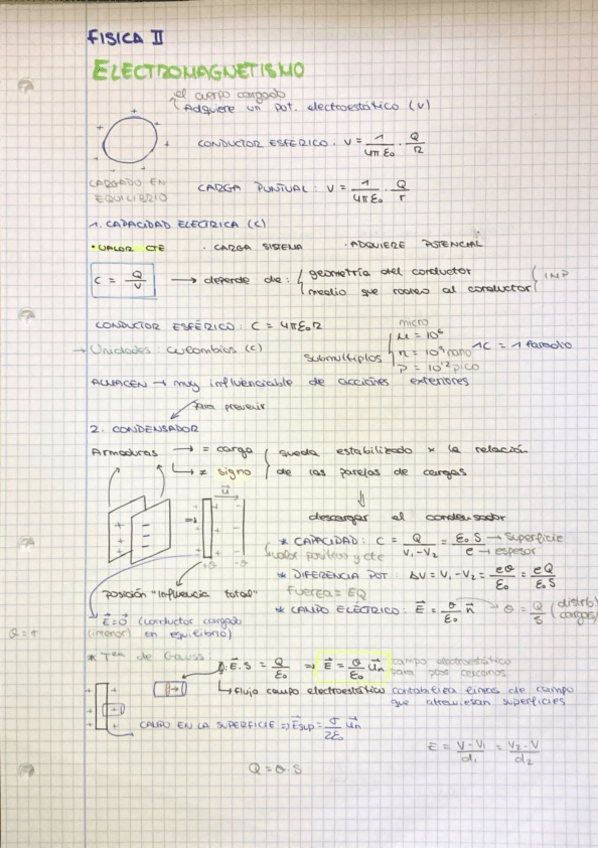 FISICA II
ELECTROMAGNETISMO
el cuerpo cargado
Adquiere un pot. electroestático (V)
CONDUCTOR ESFÉRICO: V = 1/4πε₀ · Q/R
CARGADO EN
EQUILIBRIO
CARGA PUNTUAL: V = 1/4πε₀ · Q/r
1. CAPACIDAD ELECTRICA (C)
• VALOR CTE · CARGA SISTEMA · ADQUIERE POTENCIAL
C = Q/V → depende de: geometría del conductor
medio que rodea al conductor
IMP
CONDUCTOR ESFÉRICO: C = 4πε₀R
→ Unidades: culombios (C)
submultiplos
micro
μ = 10⁶
n = 10⁹ nano
p = 10¹² pico
1C = 1 Faradio
ALMACEN → muy influenciable de acciones exteriores
Para prevenir
2. CONDENSADOR
Armaduras → = carga
→ ≠ signo
queda estabilizado x la relación
de las parejas de cargas
descargar el condensador
* CAPACIDAD: C = Q/V₁-V₂ = ε₀S/e → Superficie
→ espesor
valor positivo y cte
* DIFERENCIA POT: ΔV = V₁-V₂ = eσ/ε₀ = eQ/ε₀S
Posición "Influencia total"
Fuerza = EQ
* CAMPO ELÉCTRICO: E = σ/ε₀ n → σ = Q/S (distrib cargas)
E=0 (conductor cargado
(interior) en equilibrio)
* Tma de Gauss
E·S = Q/ε₀ ⇒ E = σ/ε₀ un
campo electroestático
para ptos cercanos
flujo campo electroestático contabiliza lineas de campo
que atraviesan superficies
CAMPO EN LA SUPERFICIE ⇒ Esup = σ/2ε₀ un
E = V-V₁/d₁ = V₂-V/d₂
Q = σ·S